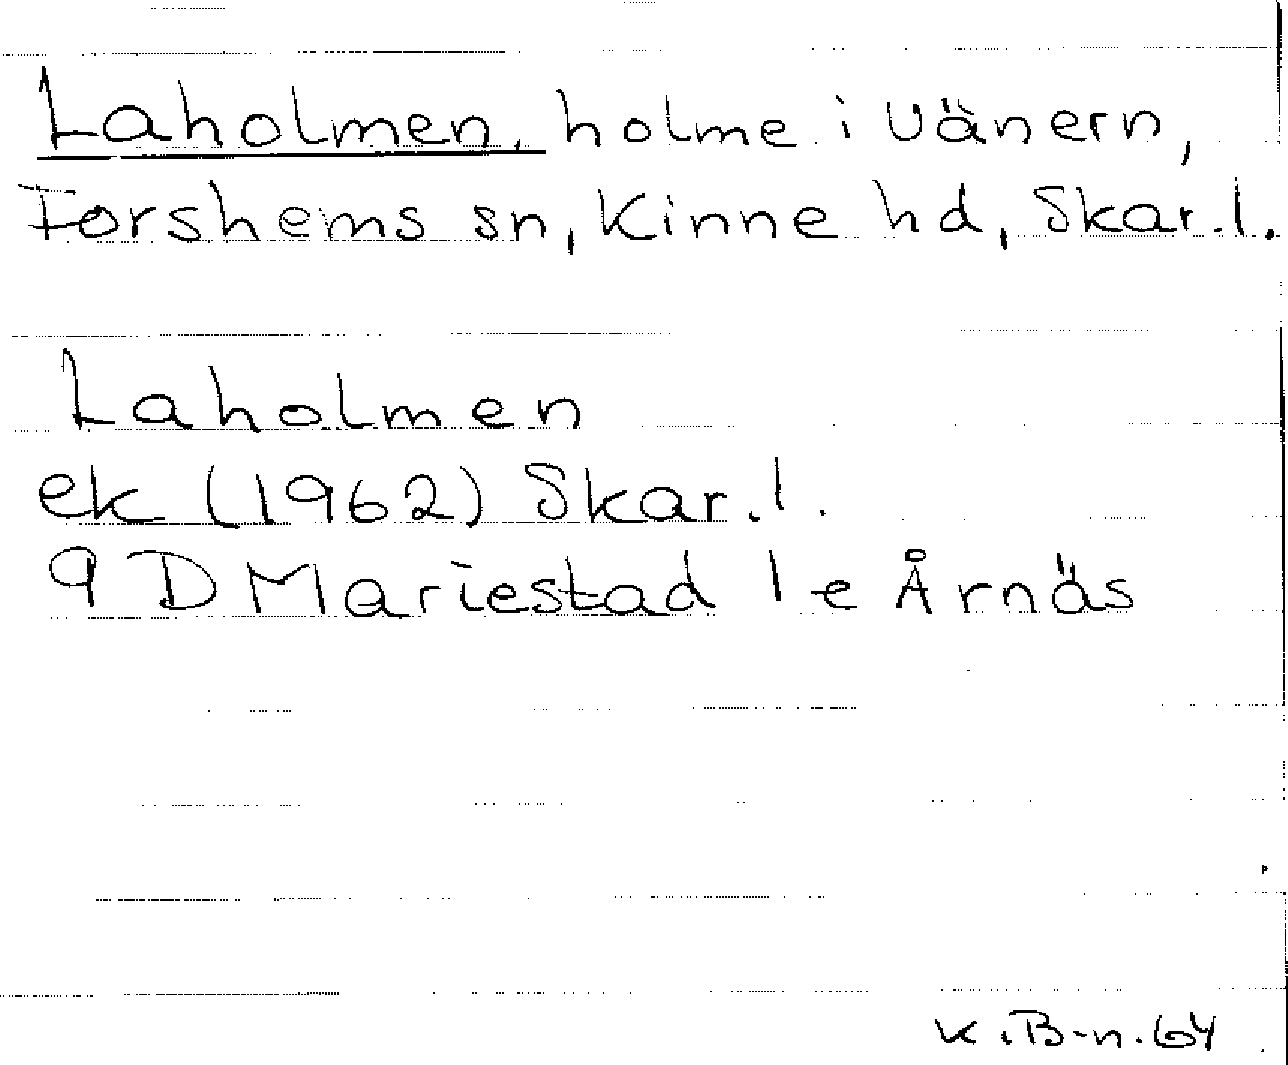 Laholmen, holme i Vänern,
Forshems sn, Kinne hd, Skar.l.
Laholmen
ek (1962) Skar.l.
9 D Mariestad 1 e Årnäs
K.B-n.64